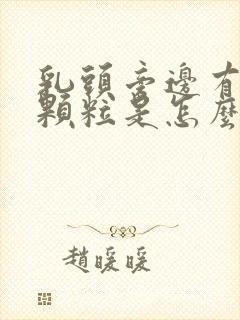 乳頭旁邊有
顆粒是怎麼
趙暖暖